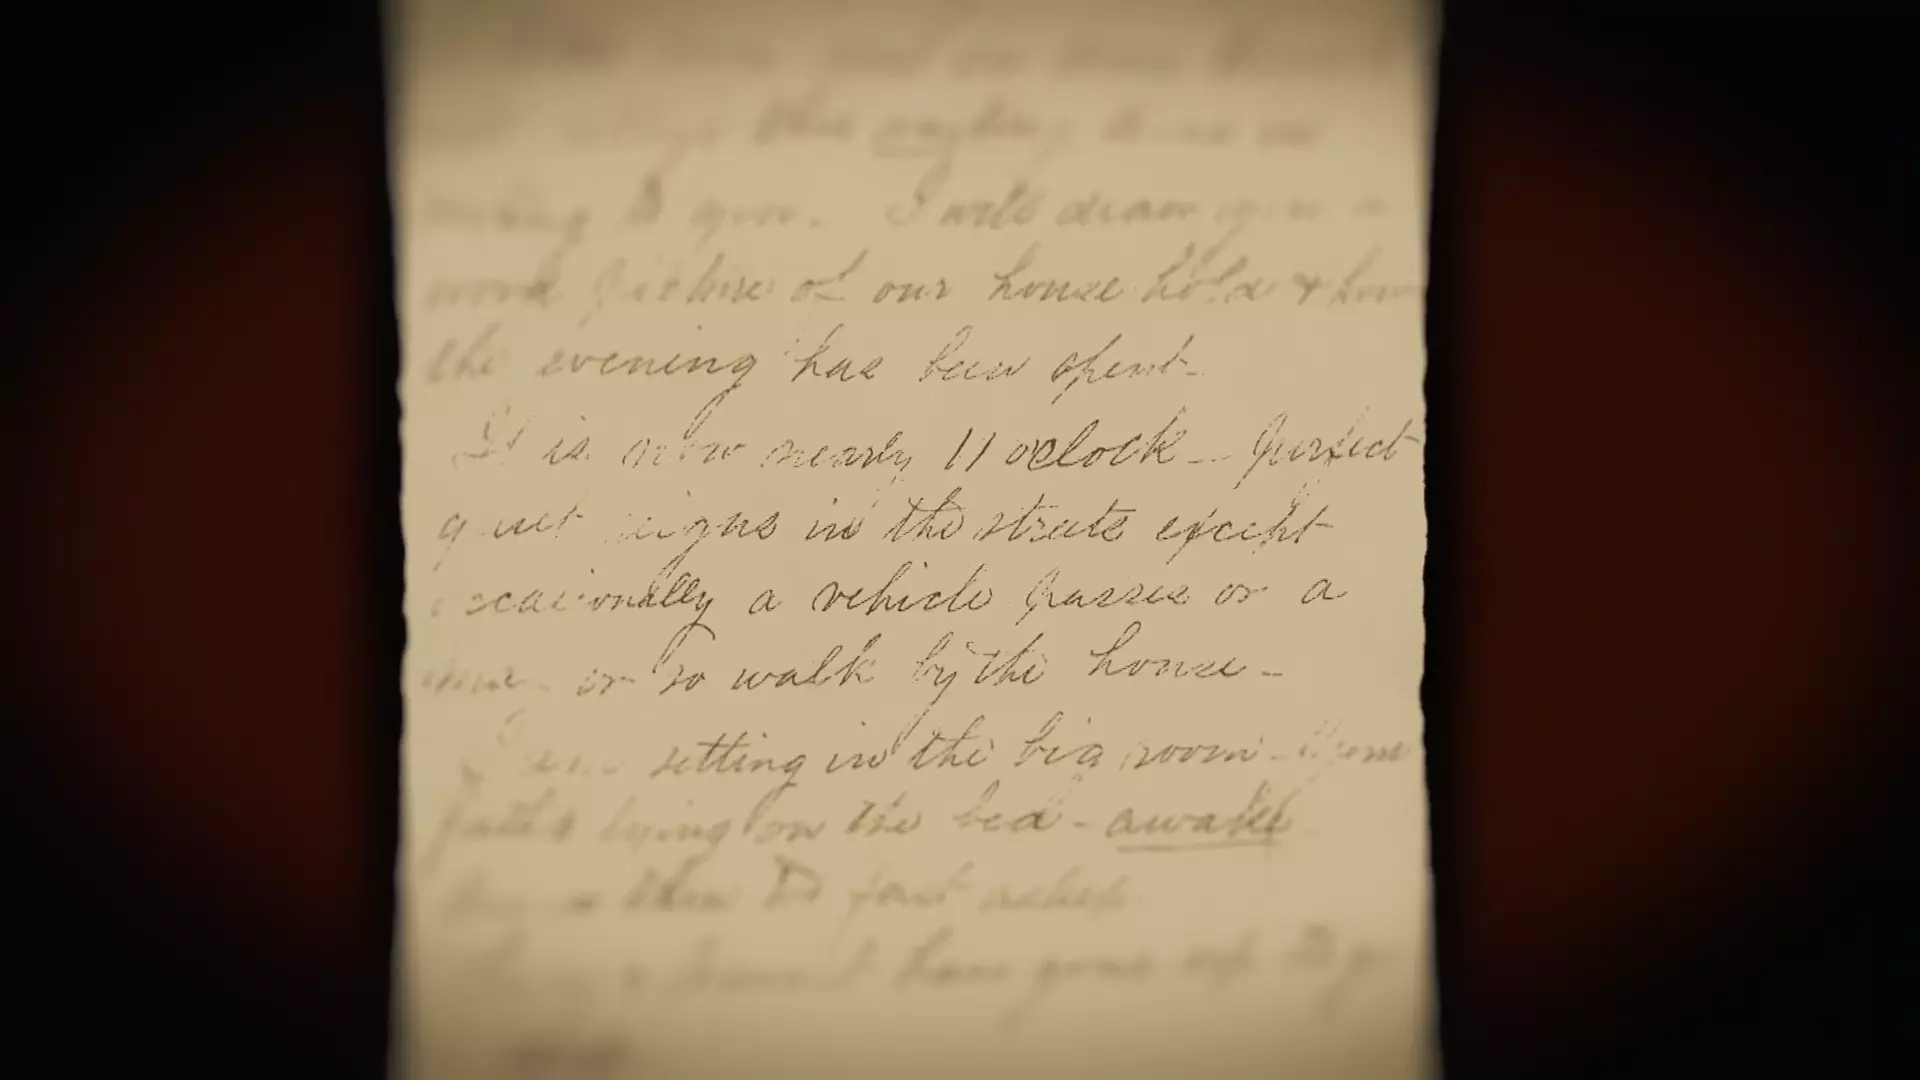 than anything
to you. I will draw you a
word picture of our house hold & how
the evening has been spent-
It is now nearly 11 oclock - perfect
quiet reigns in the streets except
occasionally a vehicle passes or a
or so walk by the house -
I am setting in the big room - Your
father lying on the bed - awake
than to fast asleep
have gone up to